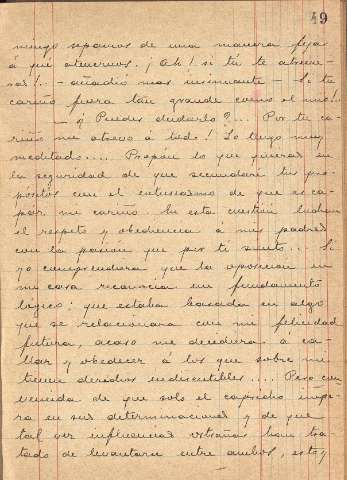 49
mingo sepamos de una manera fija
á qué atenernos. ¡Ah! si tú te atrevie-
ras!.. - añadió mas insinuante - Si tu
cariño fuera tan grande como el mio!..
- ¿Puedes dudarlo?... Por tu ca-
riño me atrevo á todo! Lo tengo muy
meditado.... Propón lo que quieras en
la seguridad de que secundaré tus pro-
pósitos con el entusiasmo de que es ca-
paz mi cariño. En esta cuestión luchan
el respeto y obediencia á mis padres
con la pasión que por ti siento... Si
yo comprendiera que la oposición en
mi casa reconocia un fundamento
lógico; que estaba basada en algo
que se relacionara con mi felicidad
futura, acaso me decidiera á ca-
llar y obedecer á los que sobre mi
tienen derechos indiscutibles.... Pero con
vencida de que solo el capricho impe-
ra en sus determinaciones y de que
tal vez influencias extrañas han tra-
tado de levantarse entre ambos, estoy